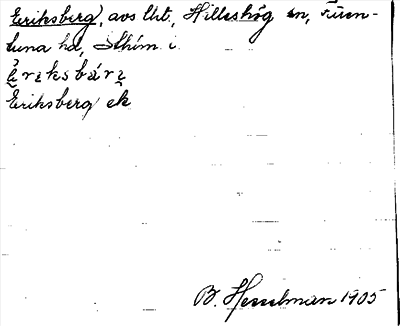 Eriksberg, avs lht., Hilleshög sn, Fären-
tuna hd, Sthlm i.
ḙ́ rɪksbárɪ
Eriksberg ek
B. Hesselman 1905